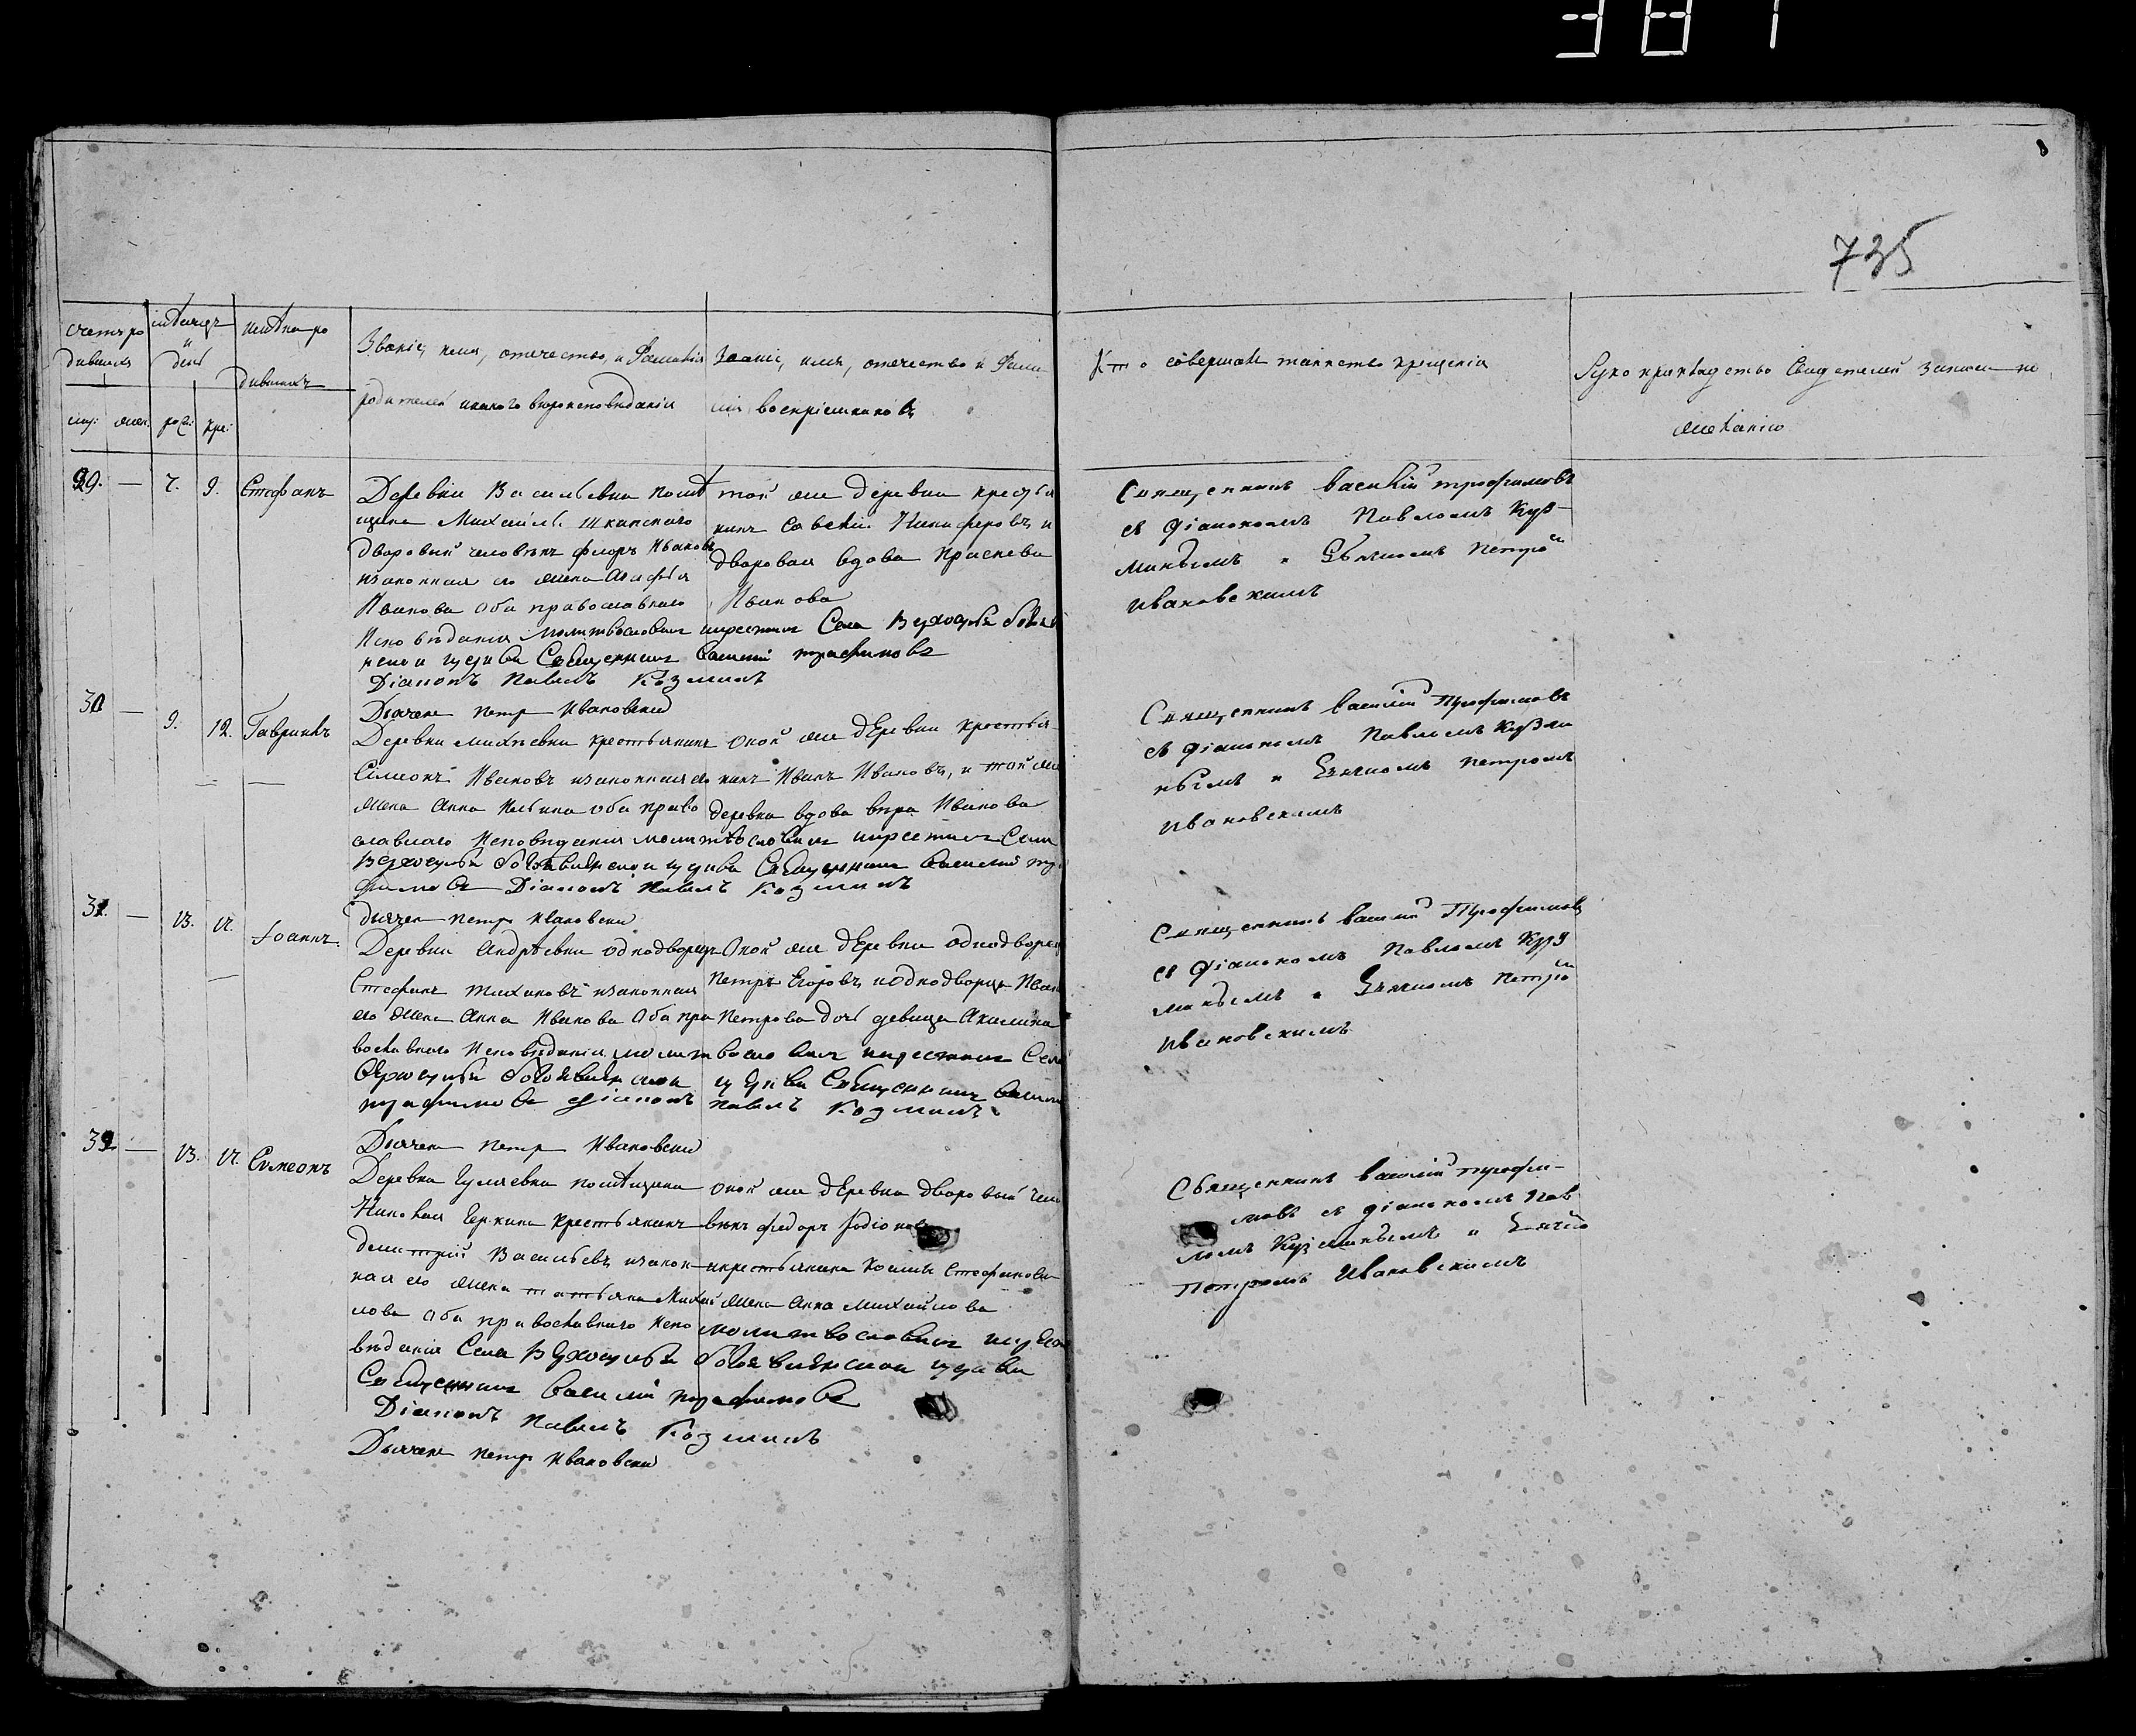 387
735
счетъ ро
дивших
мѣсяцъ
и
день
имѣна ро
дивших
Званіе, имя, отечество, и Фамилія
родителей икакого вѣроисповѣданія
Званіе, имя, отечество и Фами
лія воспріемниковъ
Кто совершалъ таинство крещенія
Рукоприкладство Свидетелей записи по
желанію
му: жен. рож: кре:
29. — 7. 9. Стефанъ
Деревни Васильевки помѣ
щика
дворовый человѣкъ флоръ Ивановъ
изаконная его жена Агафья
Иванова оба православнаго
Исповѣданія молитвословилъ икрестилъ Села
церкви Священникъ Василий трофимовъ
Діаконъ Павелъ Козминъ
Дьячекъ петръ Ивановский
той же деревни крестья
нинъ Савелій Никифоровъ и
дворовая вдова Прасковья
Иванова
Священникъ Василій трофимовъ
съ діакономъ Павломъ Куз-
минымъ и Дьячкомъ Петро
Ивановскимъ
30 — 9. 12. Гавриилъ
Деревни михѣевки крестьянинъ
Сімеонъ Ивановъ изаконная его
жена Анна Ильина оба право
славнаго Исповѣданія молитвословилъ икрестилъ Села
церкви Священникъ Василий тро
фимовъ Діаконъ Павелъ Козминъ
дьячекъ петръ Ивановский
оной же дЕревни крестья
нинъ Иванъ Ивановъ, и той же
деревни вдова вѣра Иванова
Священникъ Василій Трофимовъ
съ діакономъ Павломъ Кузми
нымъ и Дьячкомъ петромъ
Ивановскимъ
31. — 13. 17. Іоаннъ.
Деревни Андрѣевки однодворецъ
Стефанъ тихановъ изаконная
его жена Анна Иванова Оба пра
вославнаго Исповѣданія молитвословилъ икрестилъ Села
церкви Священникъ Василий
трофимовъ діаконъ Павелъ Козминъ
Дьячекъ петръ Ивановский
Оной же дЕревни однодворец
петръ Егоровъ иоднодворца Иван
Петрова дочь девица Акилина
Священникъ Василий Трофимовъ
съ діакономъ Павломъ Куз
минымъ и Дьячкомъ Петро
Ивановскимъ
32 — 13. 17. Симеонъ
Деревни помѣщика
Николая крестьянинъ
дмитрий Васильевъ изакон
ная его жена татьяна Михай
лова Оба православнаго Испо
вѣданія Села церкви
Священникъ Василий трофимовъ
Діаконъ Павелъ Козминъ
Дьячекъ петръ Ивановский
оной же дЕревни дворовый чело
вѣкъ федоръ Родіонов
икрестьянина Стефанова
жена Анна михайлова
молитвословилъ
Священникъ Василий трофи-
мовъ съ діакономъ Пав
ломъ Кузминымъ и Дьячко
петромъ Ивановскимъ